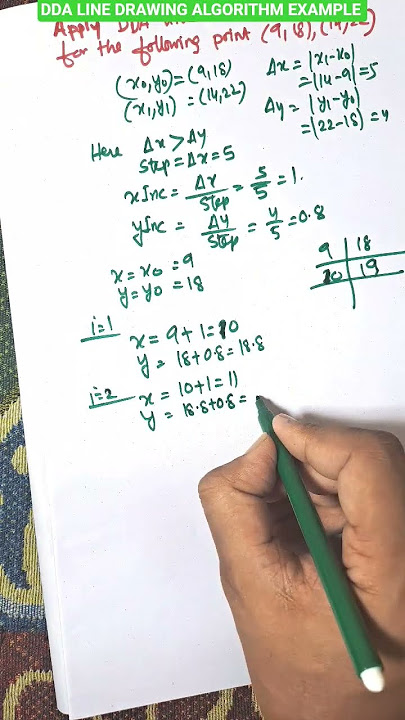 DDA LINE DRAWING ALGORITHM EXAMPLE
Apply DDA
for the following point (9,18), (14,22)
(x0,y0) = (9,18)
(x1,y1) = (14,22)
Δx = |x1-x0|
= |14-9| = 5
Δy = |y1-y0|
= |22-18| = 4
Here Δx > Δy
Step = Δx = 5
xInc = Δx/Step = 5/5 = 1.
yInc = Δy/Step = 4/5 = 0.8
x = x0 = 9
y = y0 = 18
9 | 18
10 | 19
i=1
x = 9+1 = 10
y = 18+0.8 = 18.8
i=2
x = 10+1 = 11
y = 18.8+0.8 =